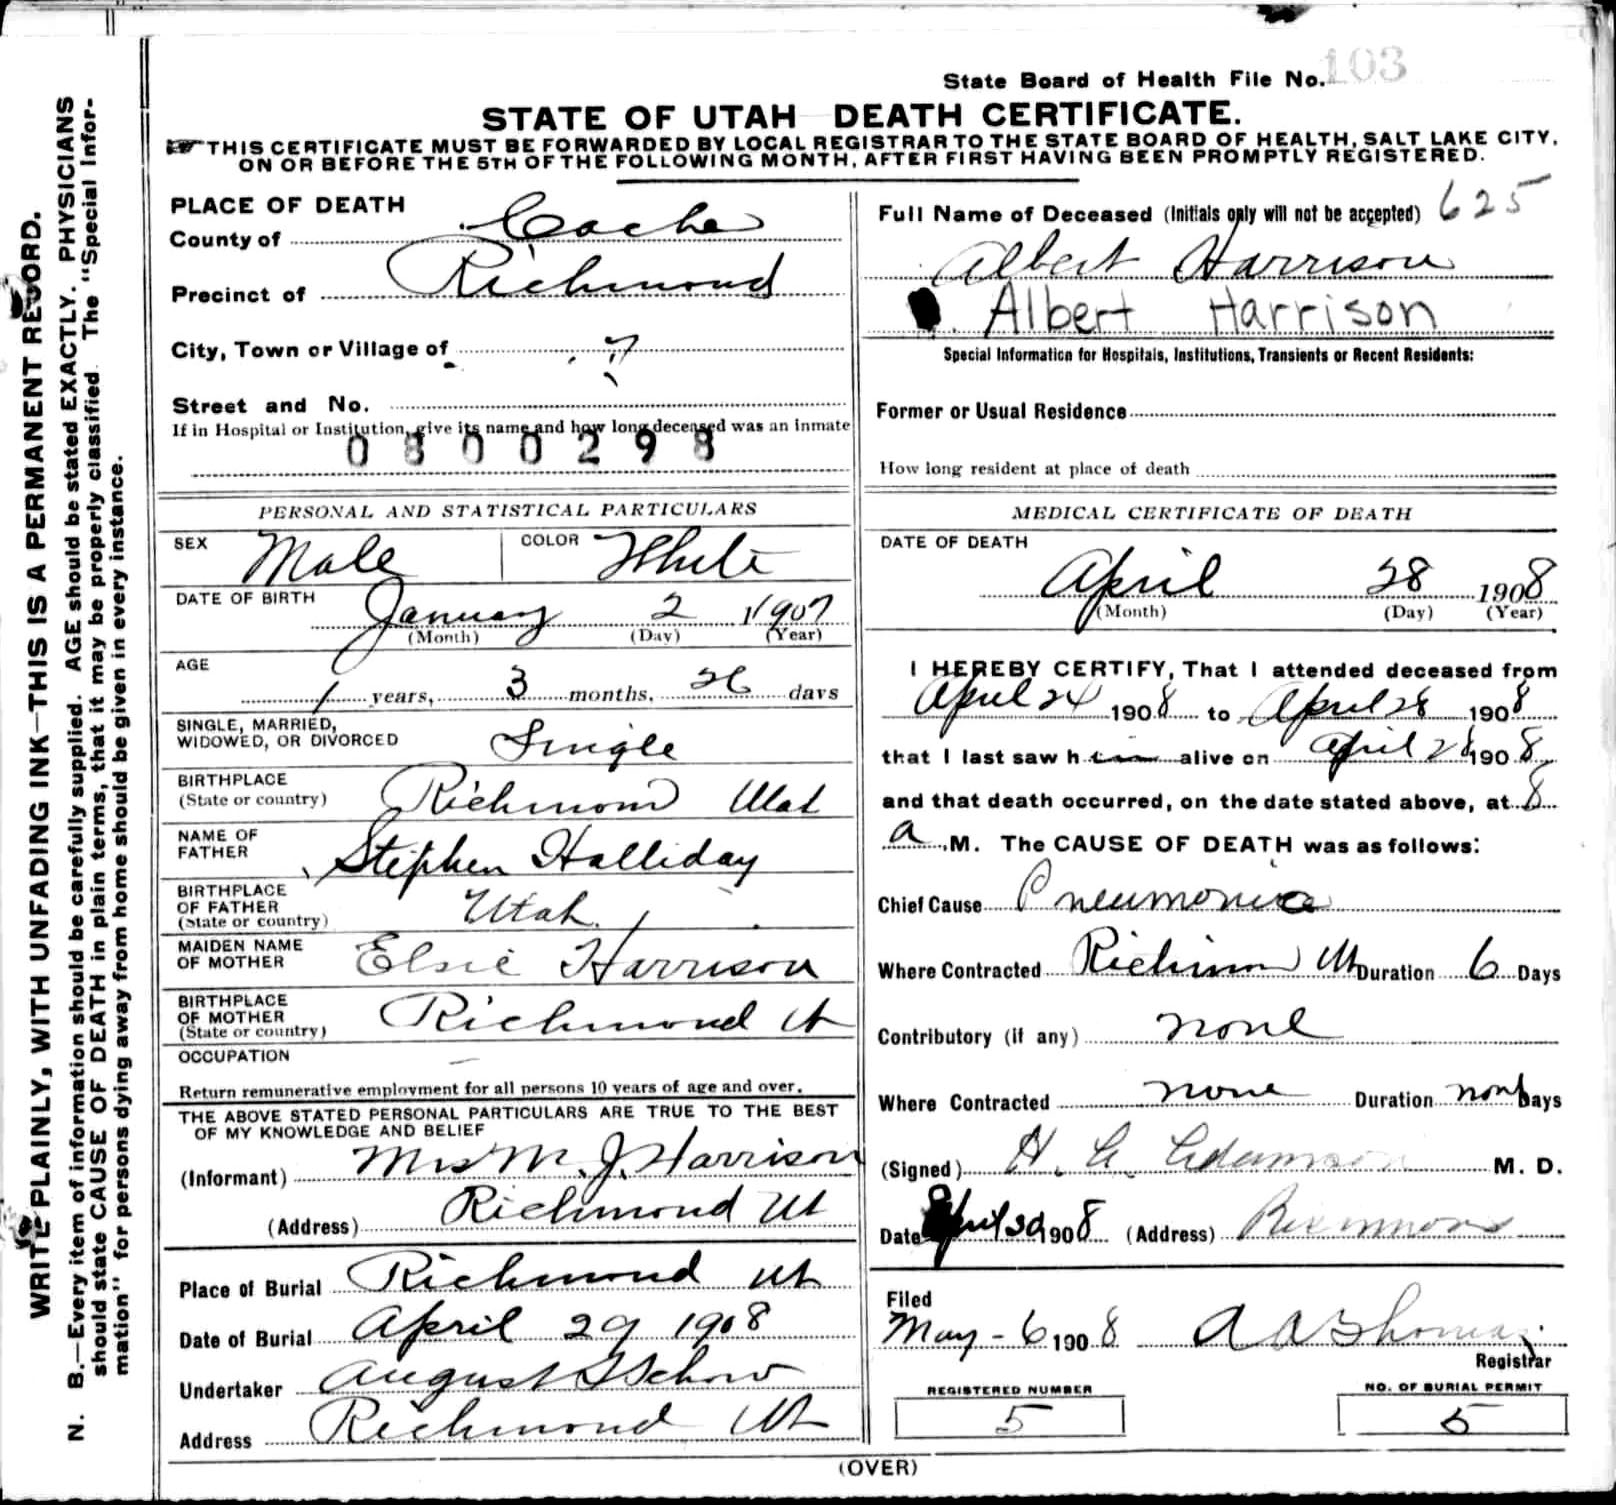 State Board of Health File No. 103
STATE OF UTAH DEATH CERTIFICATE.
THIS CERTIFICATE MUST BE FORWARDED BY LOCAL REGISTRAR TO THE STATE BOARD OF HEALTH, SALT LAKE CITY,
ON OR BEFORE THE 5TH OF THE FOLLOWING MONTH, AFTER FIRST HAVING BEEN PROMPTLY REGISTERED.
WRITE PLAINLY, WITH UNFADING INK—THIS IS A PERMANENT RECORD.
N. B.—Every item of information should be carefully supplied. AGE should be stated EXACTLY. PHYSICIANS
should state CAUSE OF DEATH in plain terms, that it may be properly classified. The "Special Infor-
mation" for persons dying away from home should be given in every instance.
PLACE OF DEATH
County of Cache
Precinct of Richmond
City, Town or Village of
Street and No.
If in Hospital or Institution, give its name and how long deceased was an inmate
0800298
PERSONAL AND STATISTICAL PARTICULARS
SEX Male COLOR White
DATE OF BIRTH January 2 1907
(Month) (Day) (Year)
AGE
1 years, 3 months, 26 days
SINGLE, MARRIED,
WIDOWED, OR DIVORCED Single
BIRTHPLACE
(State or country) Richmond Utah
NAME OF
FATHER Stephen Halliday
BIRTHPLACE
OF FATHER
(State or country) Utah
MAIDEN NAME
OF MOTHER Elsie Harrison
BIRTHPLACE
OF MOTHER
(State or country) Richmond Ut
OCCUPATION —
Return remunerative employment for all persons 10 years of age and over.
THE ABOVE STATED PERSONAL PARTICULARS ARE TRUE TO THE BEST
OF MY KNOWLEDGE AND BELIEF
(Informant) Mrs M. J. Harrison
(Address) Richmond Ut
Place of Burial Richmond Ut
Date of Burial April 29 1908
Undertaker August Schow
Address Richmond Ut
Full Name of Deceased (Initials only will not be accepted) 625
Albert Harrison
Albert Harrison
Special Information for Hospitals, Institutions, Transients or Recent Residents:
Former or Usual Residence
How long resident at place of death
MEDICAL CERTIFICATE OF DEATH
DATE OF DEATH
April 28 1908
(Month) (Day) (Year)
I HEREBY CERTIFY, That I attended deceased from
April 24 1908 to April 28 1908
that I last saw him alive on April 28 1908
and that death occurred, on the date stated above, at 8
a M. The CAUSE OF DEATH was as follows:
Chief Cause Pneumonia
Where Contracted Richmond Ut Duration 6 Days
Contributory (if any) none
Where Contracted none Duration none Days
(Signed) H. G. Adamson M. D.
Date April 30 1908 (Address) Richmond
Filed
May - 6 1908 A A Thomas
Registrar
REGISTERED NUMBER
5
NO. OF BURIAL PERMIT
5
(OVER)